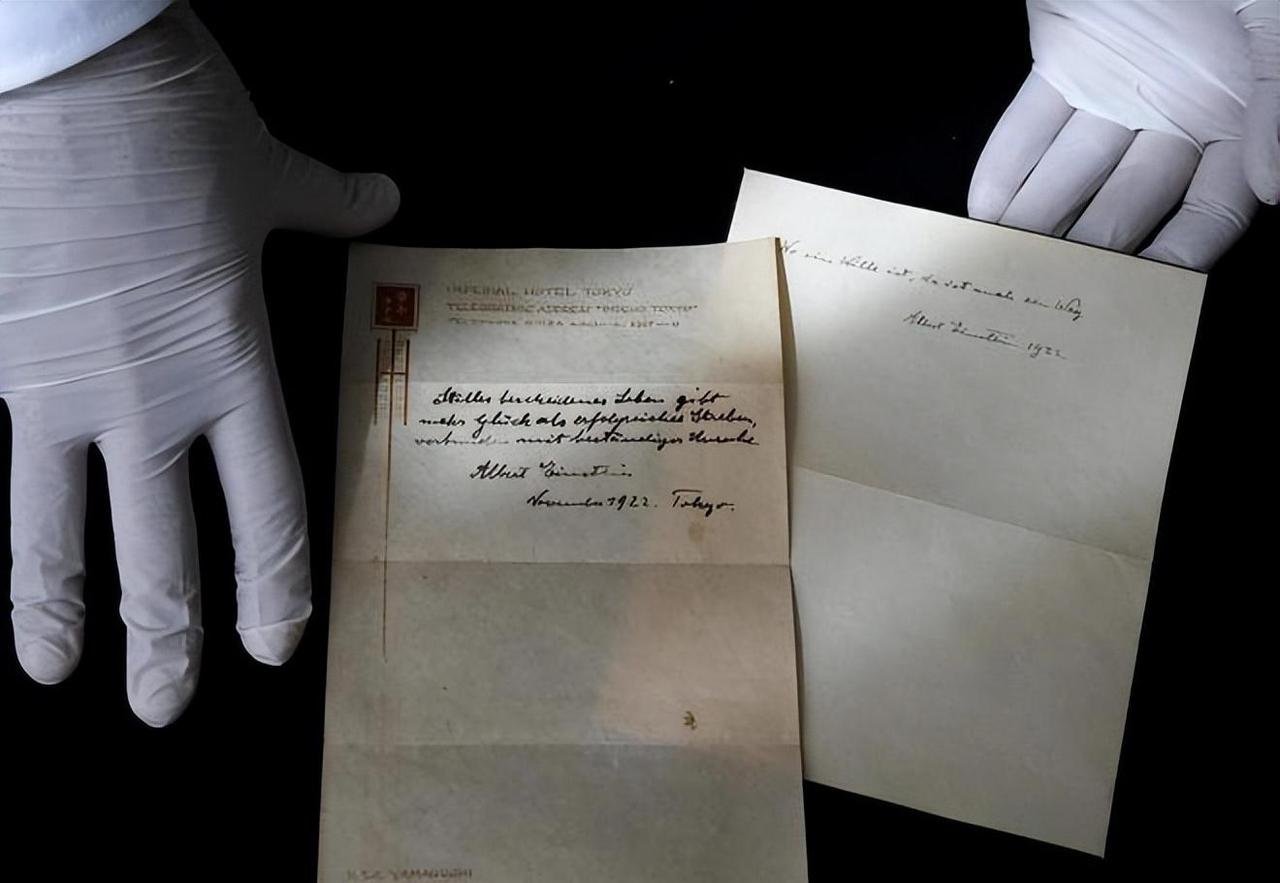 IMPERIAL HOTEL TOKYO
Stilles bescheidenes Leben gibt
mehr Glück als erfolgreiches Streben,
verbunden mit beständiger Unruhe
Albert Einstein
November 1922. Tokyo.
YAMAGUCHI
Wo ein Wille ist, da ist auch ein Weg
Albert Einstein 1922